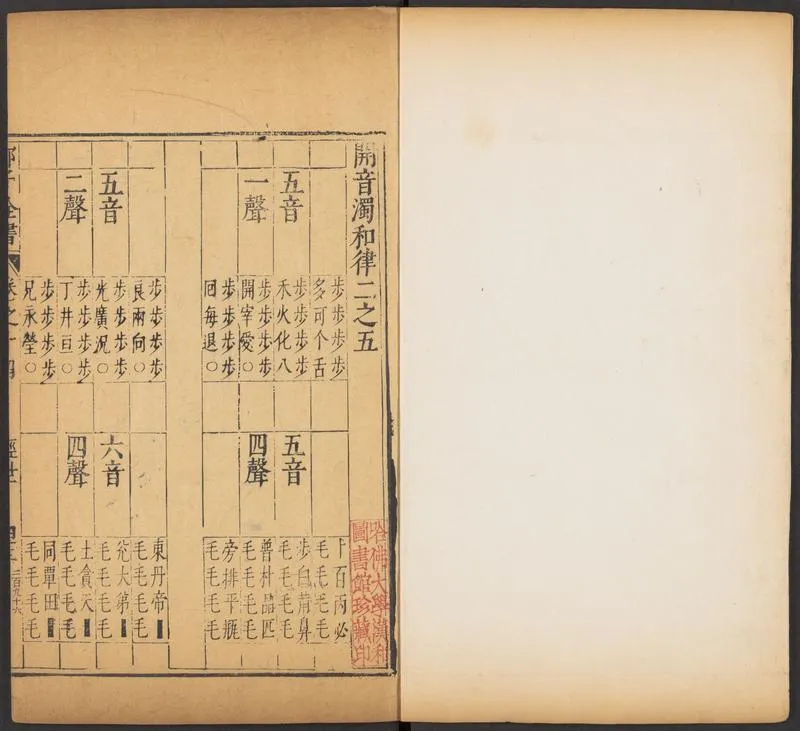 開音濁和律二之五
哈佛大學漢和
圖書館珍藏印
五音
一聲
步步步步
多可个舌
步步步步
禾火化八
步步步步
開宰愛○
步步步步
回每退○
五音
四聲
卜百丙必
毛毛毛毛
步白荊鼻
毛毛毛毛
普朴品匹
毛毛毛毛
旁排平瓶
毛毛毛毛
五音
二聲
步步步步
良兩向○
步步步步
光廣況○
步步步步
丁井亘○
步步步步
兄永瑩○
六音
四聲
東丹帝■
毛毛毛毛
兊大第■
毛毛毛毛
土貪天■
毛毛毛毛
同覃田■
毛毛毛毛
子全書
卷之十四
經世
二百九十六